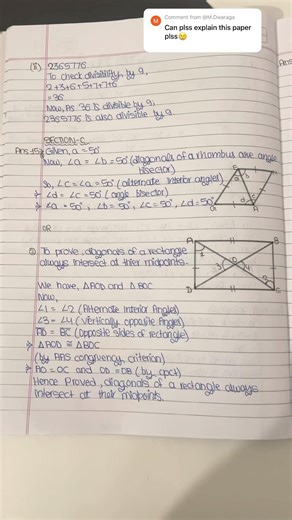 Comment from @M.Dwaraga
Can plss explain this paper
plss🥲
(B) 2365776
To check divisibility by 9,
2+3+6+5+7+7+6
= 36
Now, As 36 is divisible by 9,
2365776 is also divisible by 9
SECTION-C
Ans:15) Given, a = 50°
Now, ∠a = ∠b = 50° (diagonals of a rhombus are angle
bisector)
So, ∠c = ∠a = 50° (alternate interior angles)
⇒ ∠d = ∠c = 50° (angle bisector)
⇒ ∠a = 50°, ∠b = 50°, ∠c = 50°, ∠d = 50°
OR
To prove, diagonals of a rectangle
always intersect at thier midpoints.
A B
D C
We have, △AOD and △BOC
Now,
∠1 = ∠2 (Alternate Interior Angles)
∠3 = ∠4 (Vertically opposite Angles)
AD = BC (Opposite sides of rectangle)
⇒ △AOD ≅ △BOC
(by AAS congruency criterion)
⇒ AO = OC and OD = OB (by cpct)
Hence Proved, diagonals of a rectangle always
intersect at their midpoints.